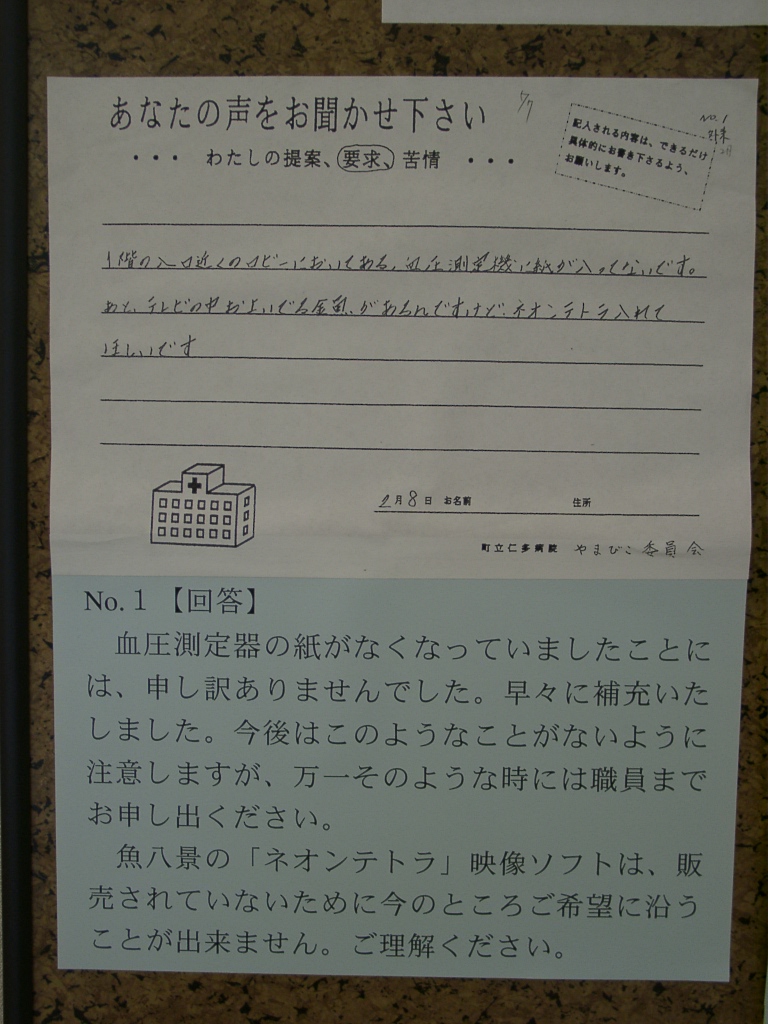 あなたの声をお聞かせ下さい
・・・ わたしの提案、要求、苦情 ・・・
No.1
記入される内容は、できるだけ
具体的にお書き下さるよう、
お願いします。
1階の入口近くのロビーにおいてある、血圧測定機に紙が入ってないです。
あと、テレビの中およいでる金魚、があるんですけど、ネオンテトラ入れて
ほしいです
2月8日 お名前 住所
町立仁多病院 やまびこ委員会
No.1【回答】
血圧測定器の紙がなくなっていましたことに
は、申し訳ありませんでした。早々に補充いた
しました。今後はこのようなことがないように
注意しますが、万一そのような時には職員まで
お申し出ください。
魚八景の「ネオンテトラ」映像ソフトは、販
売されていないために今のところご希望に沿う
ことが出来ません。ご理解ください。